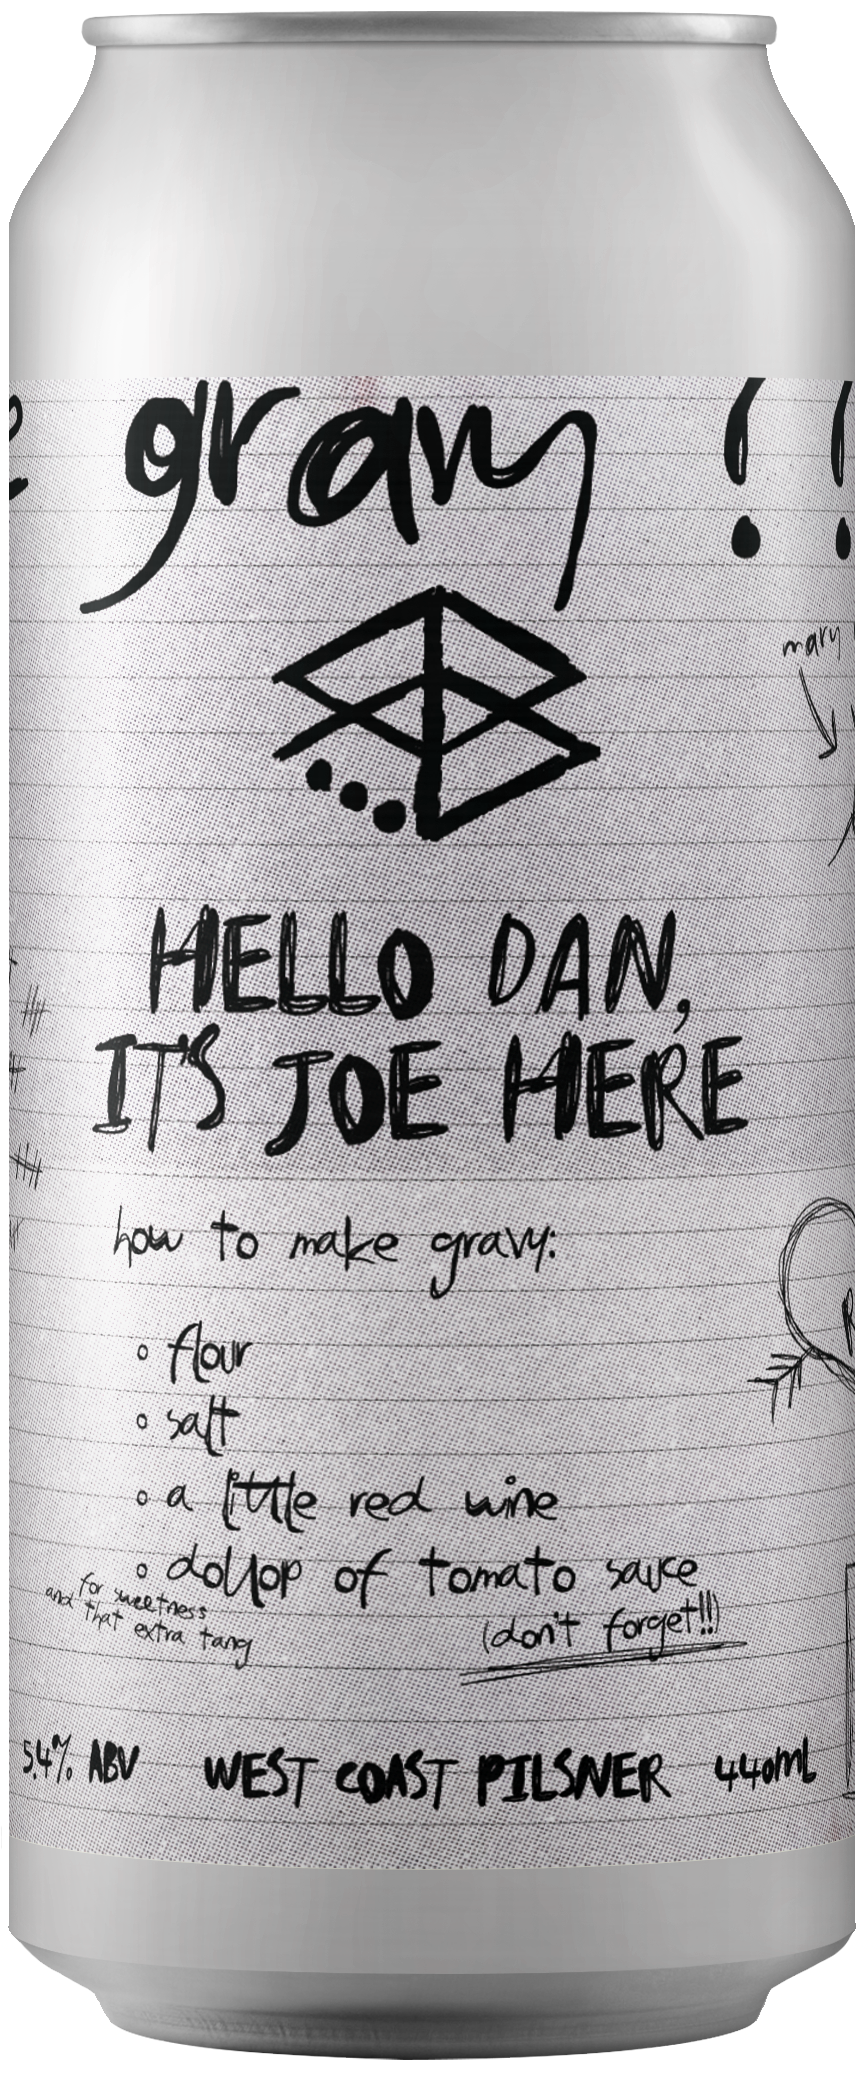 gravy ??
mary
HELLO DAN,
IT'S JOE HERE
how to make gravy:
flour
salt
a little red wine
dollop of tomato sauce
for sweetness
and that extra tang
(don't forget!!)
5.4% ABV WEST COAST PILSNER 440mL